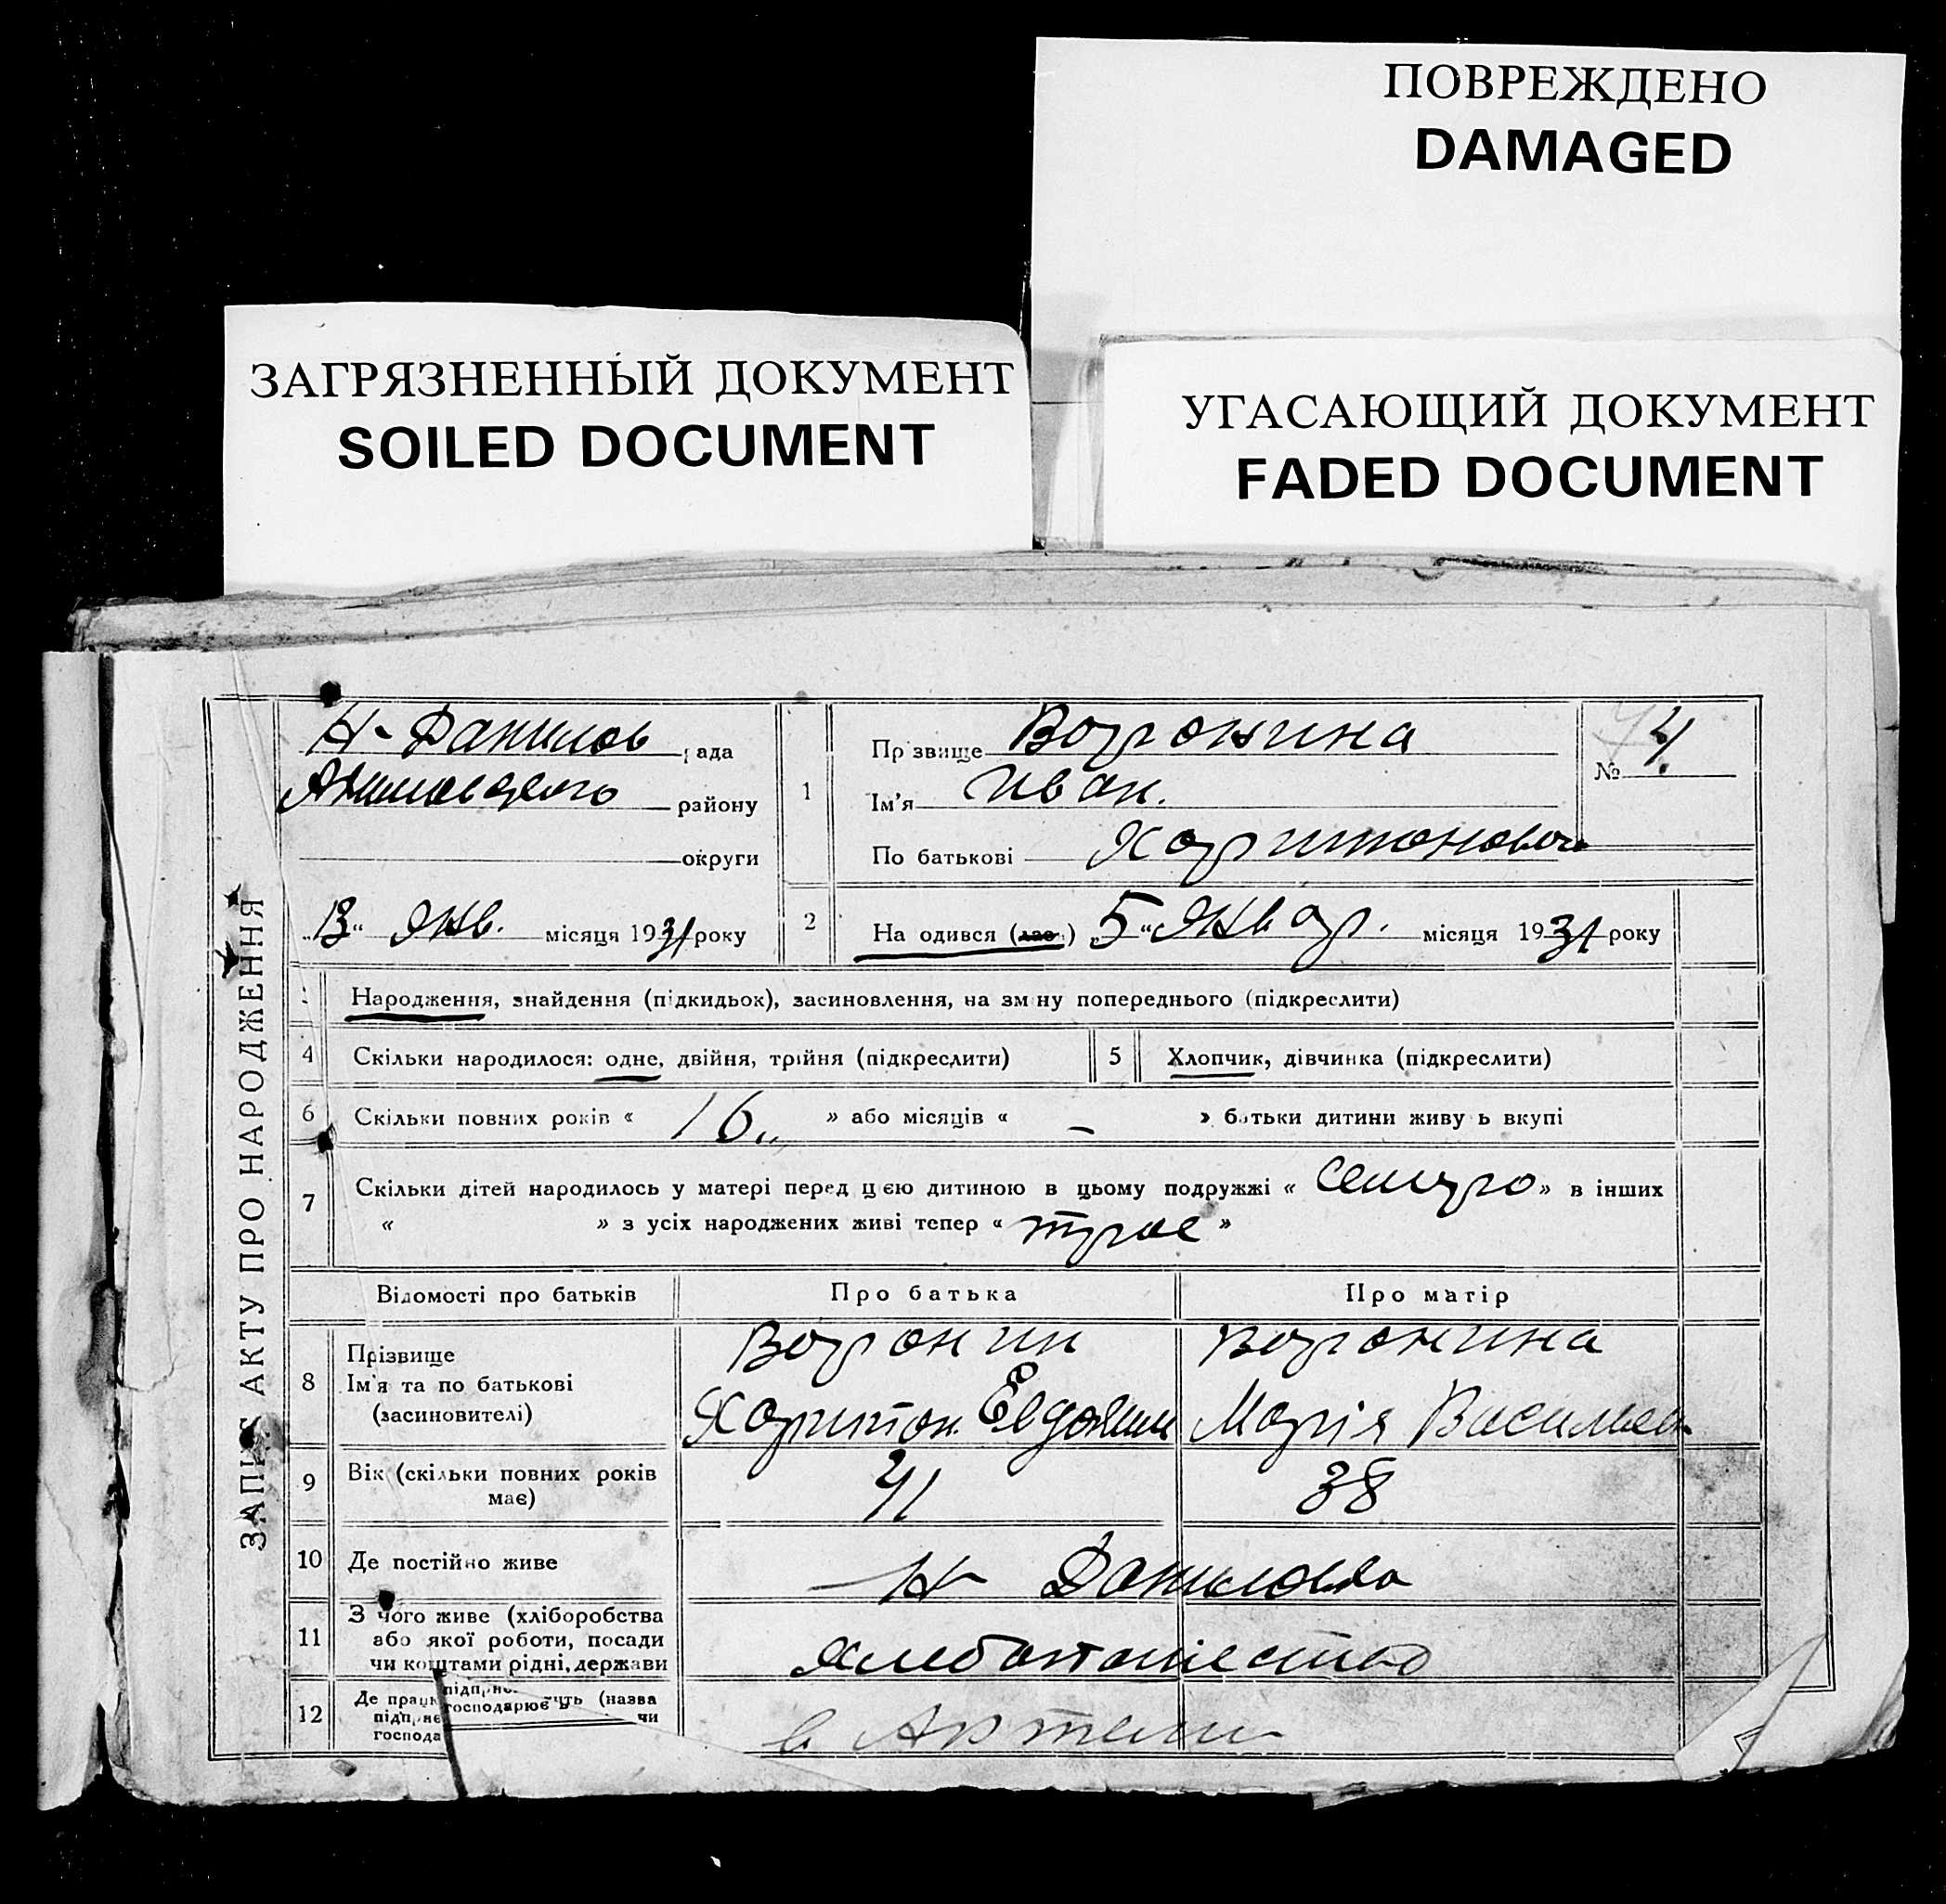 ПОВРЕЖДЕНО
DAMAGED
ЗАГРЯЗНЕННЫЙ ДОКУМЕНТ
SOILED DOCUMENT
УГАСАЮЩИЙ ДОКУМЕНТ
FADED DOCUMENT
ЗАПИС АКТУ ПРО НАРОДЖЕННЯ
Н-Данилов рада
району
округи
"13" Янв. місяця 1931 року
1
Прізвище Воронина
Ім'я Иван.
По батькові Харитонович
№ 4
2
На одився (лась) "5" Январ. місяця 1931 року
Народження, знайдення (підкидьок), засиновлення, на зміну попереднього (підкреслити)
4 Скільки народилося: одне, двійня, трійня (підкреслити)
5 Хлопчик, дівчинка (підкреслити)
6 Скільки повних років « 16 » або місяців « - » батьки дитини живуть вкупі
7 Скільки дітей народилось у матері перед цією дитиною в цьому подружжі « семеро » в інших
« » з усіх народжених живі тепер « трое »
Відомості про батьків Про батька Про матір
8 Прізвище Ім'я та по батькові (засиновителі)
Воронин Харитон Евдоким
Воронина Марія Васильев
9 Вік (скільки повних років має) 41 38
10 Де постійно живе Н-Даниловка
11 З чого живе (хліборобства або якої роботи, посади чи коштами рідні, держави хлебопашество
12 Де прац (назва
господарює чи
господа
в Артели